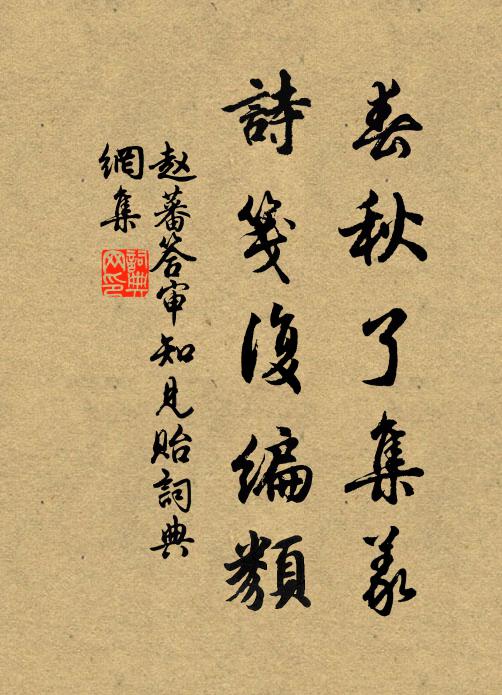 春秋了集义
詩箋復編類
赵蕃答审知见贻詞典
網集
詞典网印